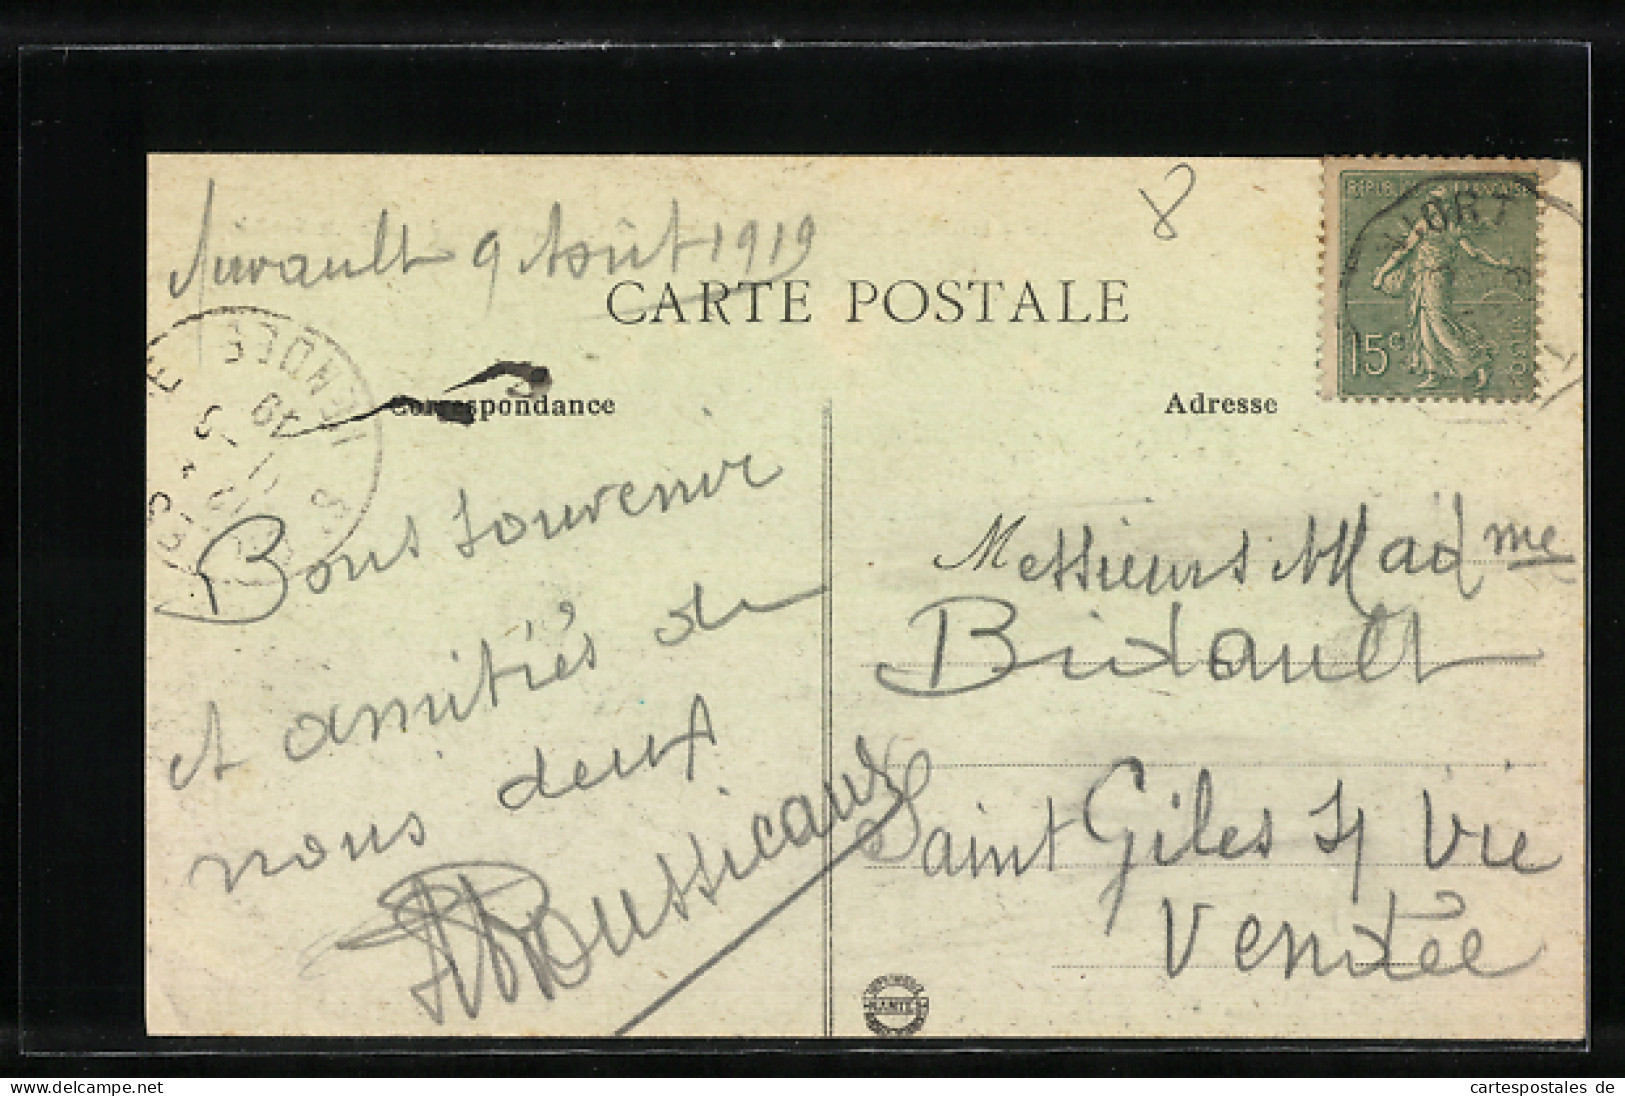 Airvault 9 Août 1919
8
CARTE POSTALE
Correspondance
Adresse
RÉPUBLIQUE FRANÇAISE
15c
POSTES
NIORT
Bons souvenir
et amitiés de
nous deux
Boussicault
Messieurs Mad me
Bidault
Saint Giles S/ Vie
Vendée
NANTES
cartespostales de